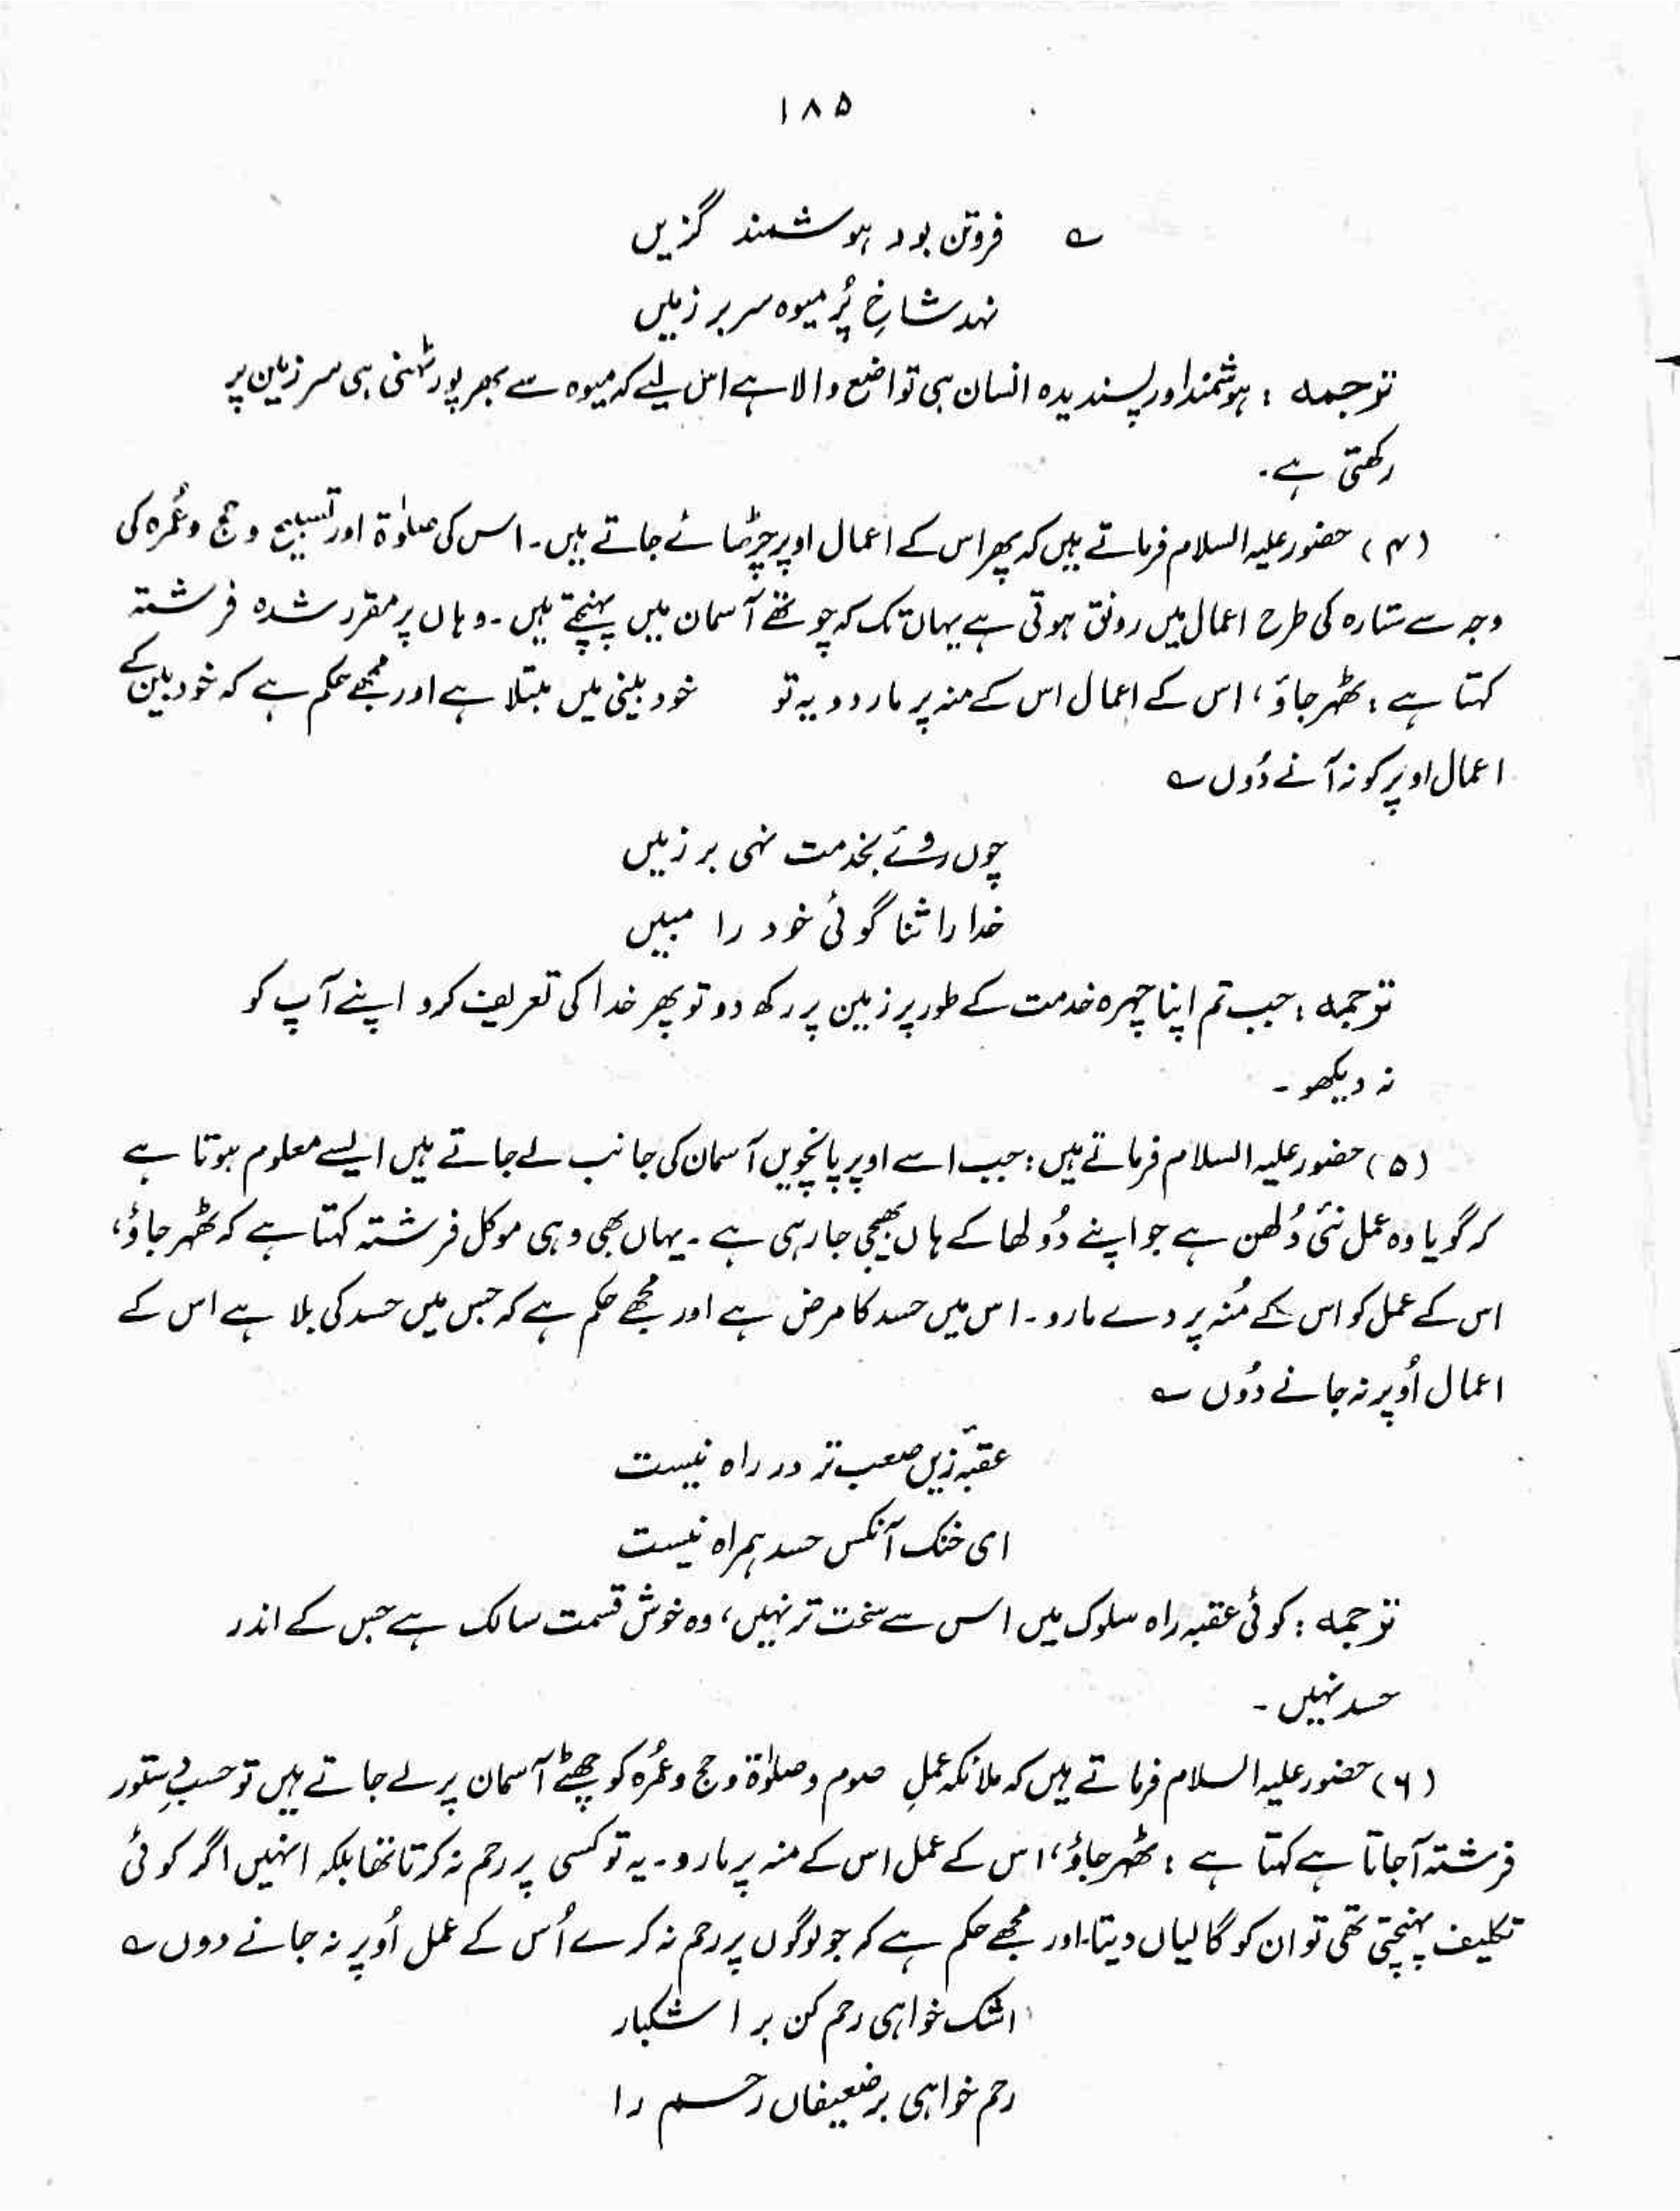 ۱۸۵
؎ فروتن بود ہوشمند گزیں
نہد شاخِ پُر میوہ سر بر زمیں
ترجمہ : ہوشمند اور پسندیدہ انسان ہی تواضع والا ہے اس لیے کہ میوہ سے بھر پور ٹہنی ہی سر زمین پر
رکھتی ہے۔
(۴) حضور علیہ السلام فرماتے ہیں کہ پھر اس کے اعمال اوپر چڑھائے جاتے ہیں۔ اس کی صلوٰۃ اور تسبیح و حج و عُمرہ کی
وجہ سے ستارہ کی طرح اعمال میں رونق ہوتی ہے یہاں تک کہ چوتھے آسمان میں پہنچتے ہیں۔ وہاں پر مقرر شدہ فرشتہ
کہتا ہے : ٹھہر جاؤ، اس کے اعمال اس کے منہ پر مار دو یہ تو خود بینی میں مبتلا ہے اور مجھے حکم ہے کہ خود بین کے
اعمال اوپر کو نہ آنے دُوں ؎
چوں روئے بخدمت نہی بر زمیں
خدا را ثنا گوئی خود را مبیں
ترجمہ : جب تم اپنا چہرہ خدمت کے طور پر زمین پر رکھ دو تو پھر خدا کی تعریف کرو اپنے آپ کو
نہ دیکھو۔
(۵) حضور علیہ السلام فرماتے ہیں : جب اسے اوپر پانچویں آسمان کی جانب لے جاتے ہیں ایسے معلوم ہوتا ہے
کہ گویا وہ عمل نئی دُلھن ہے جو اپنے دُولھا کے ہاں بھیجی جا رہی ہے۔ یہاں بھی وہی موکل فرشتہ کہتا ہے کہ ٹھہر جاؤ،
اس کے عمل کو اس کے مُنہ پر دے مارو۔ اس میں حسد کا مرض ہے اور مجھے حکم ہے کہ جس میں حسد کی بلا ہے اس کے
اعمال اُوپر نہ جانے دُوں ؎
عقبۂ زیں صعب تر در راہ نیست
ای خنک آنکس حسد ہمراہ نیست
ترجمہ : کوئی عقبہ راہ سلوک میں اس سے سخت تر نہیں، وہ خوش قسمت سالک ہے جس کے اندر
حسد نہیں۔
(۶) حضور علیہ السلام فرماتے ہیں کہ ملائکہ عملِ صوم و صلوٰۃ و حج و عُمرہ کو چھٹے آسمان پر لے جاتے ہیں تو حسبِ دستور
فرشتہ آ جاتا ہے کہتا ہے : ٹھہر جاؤ، اس کے عمل اس کے منہ پر مارو۔ یہ تو کسی پر رحم نہ کرتا تھا بلکہ انہیں اگر کوئی
تکلیف پہنچتی تھی تو ان کو گالیاں دیتا۔ اور مجھے حکم ہے کہ جو لوگوں پر رحم نہ کرے اُس کے عمل اُوپر نہ جانے دوں ؎
اشک خواہی رحم کن بر اشکبار
رحم خواہی بر ضعیفاں رحم را